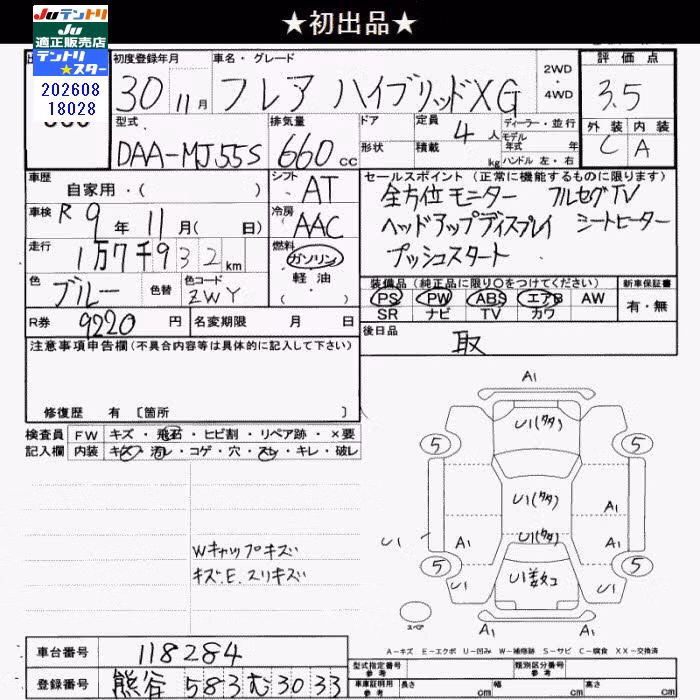 ★初出品★
JUテントリ
JU
適正販売店
テントリ
★スター
202608
18028
初度登録年月 車名・グレード 2WD 4WD 評価点
30 11月 フレア ハイブリッドXG 3.5
型式 排気量 ドア 定員 ディーラー・並行 外装 内装
DAA-MJ55S 660cc 形状 積載 4人 kg モデル年式 年 ハンドル 左・右 C A
車歴 シフト セールスポイント(正常に機能するものに限ります)
自家用・( ) AT 全方位モニター フルセグTV
車検 R9年11月( 日) 冷房 AAC ヘッドアップディスプレイ シートヒーター
走行 1万7千932km 燃料 ガソリン プッシュスタート
軽油
・( )
色 ブルー 色替 色コード ZWY
装備品(純正品に限り〇をつけてください) 新車保証書
PS PW ABS エアB AW 有・無
SR ナビ TV カワ
R券 9220円 名変期限 月 日
後日品 取
注意事項申告欄(不具合内容等は具体的に記入して下さい)
修復歴 有 〔箇所 〕
検査員 FW キズ・飛石・ヒビ割・リペア跡・×要
記入欄 内装 キズ・汚レ・コゲ・穴・スレ・キレ・破レ
Wキャップキズ
キズ.E.スリキズ
A1
U1(タタ)
5 5
U1(タタ)
A1
U1(タタ)
U1 A1 A1
5 5
U1
U1
スペア
A1
A-キズ E-エクボ U-凹み W-補修跡 S-サビ C-腐食 XX-交換済
車台番号 118284
登録番号 熊谷 583 む 3033
型式指定番号 参考 類別区分番号 参考
車庫証明用 参考 長さ cm 幅 cm 高さ cm